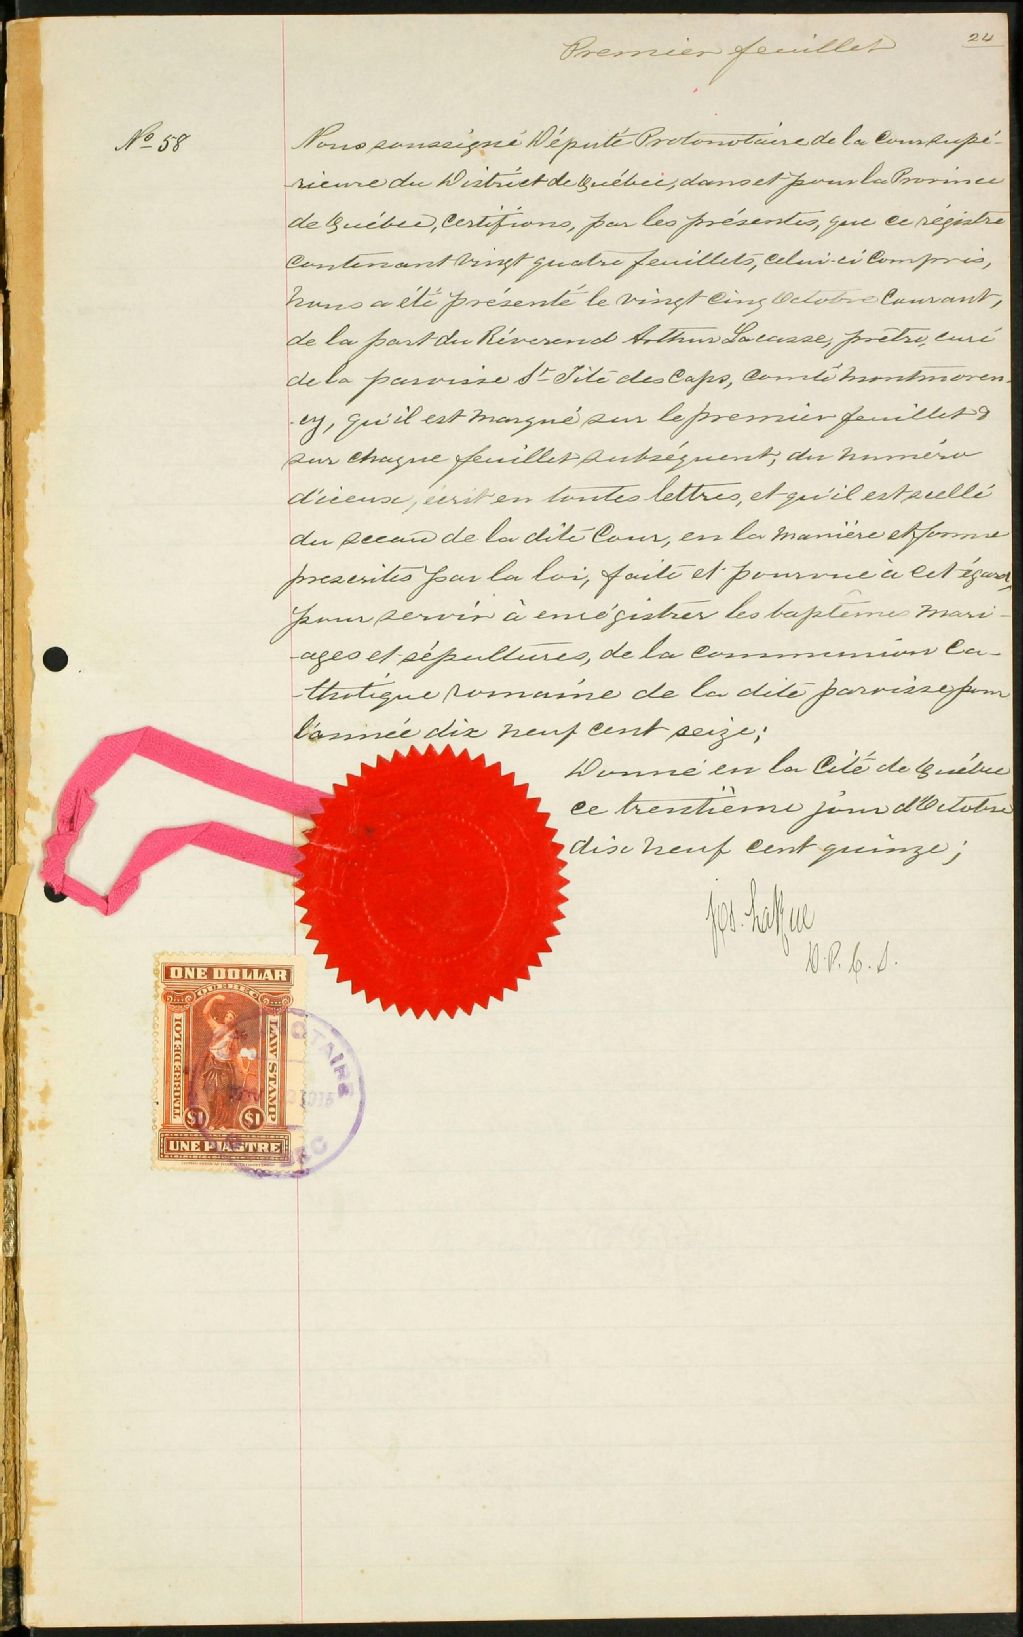 Premier feuillet
24
No 58
Nous soussigné Député Protonotaire de la Cour supé-
-rieure du District de Québec, dans et pour la Province
de Québec, certifions, par les présentes, que ce régistre
contenant vingt quatre feuillets, celui-ci compris,
nous a été présenté le vingt cinq Octobre courant,
de la part du Révérend Arthur Lacasse, prêtre, curé
de la paroisse St Tite des Caps, comté Montmoren-
-cy, qu'il est marqué sur le premier feuillet &
sur chaque feuillet subséquent, du numéro
d'iceux, écrit en toutes lettres, et qu'il est scellé
du sceau de la dite Cour, en la manière et forme
prescrites par la loi, faite et pourvue à cet égard,
pour servir à enrégistrer les baptêmes mari-
-ages et sépultures, de la communion Ca-
-tholique romaine de la dite paroisse pour
l'année dix neuf cent seize;
Donné en la Cité de Québec
ce trentième jour d'Octobre
dix neuf cent quinze;
Jos. LaRue
D. P. C. S.
ONE DOLLAR
QUEBEC
TIMBRE DE LOI
LAW STAMP
$1 $1
UNE PIASTRE